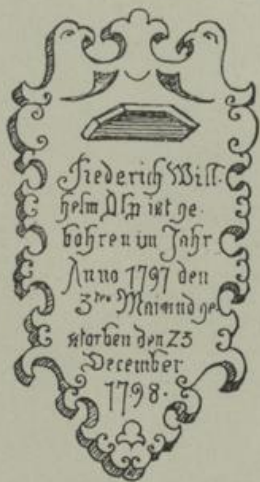 Fiederich Will-
helm Ohp ist ge-
bohren im Jahr
Anno 1797 den
3ten Mai und ge
storben den 23
December
1798.